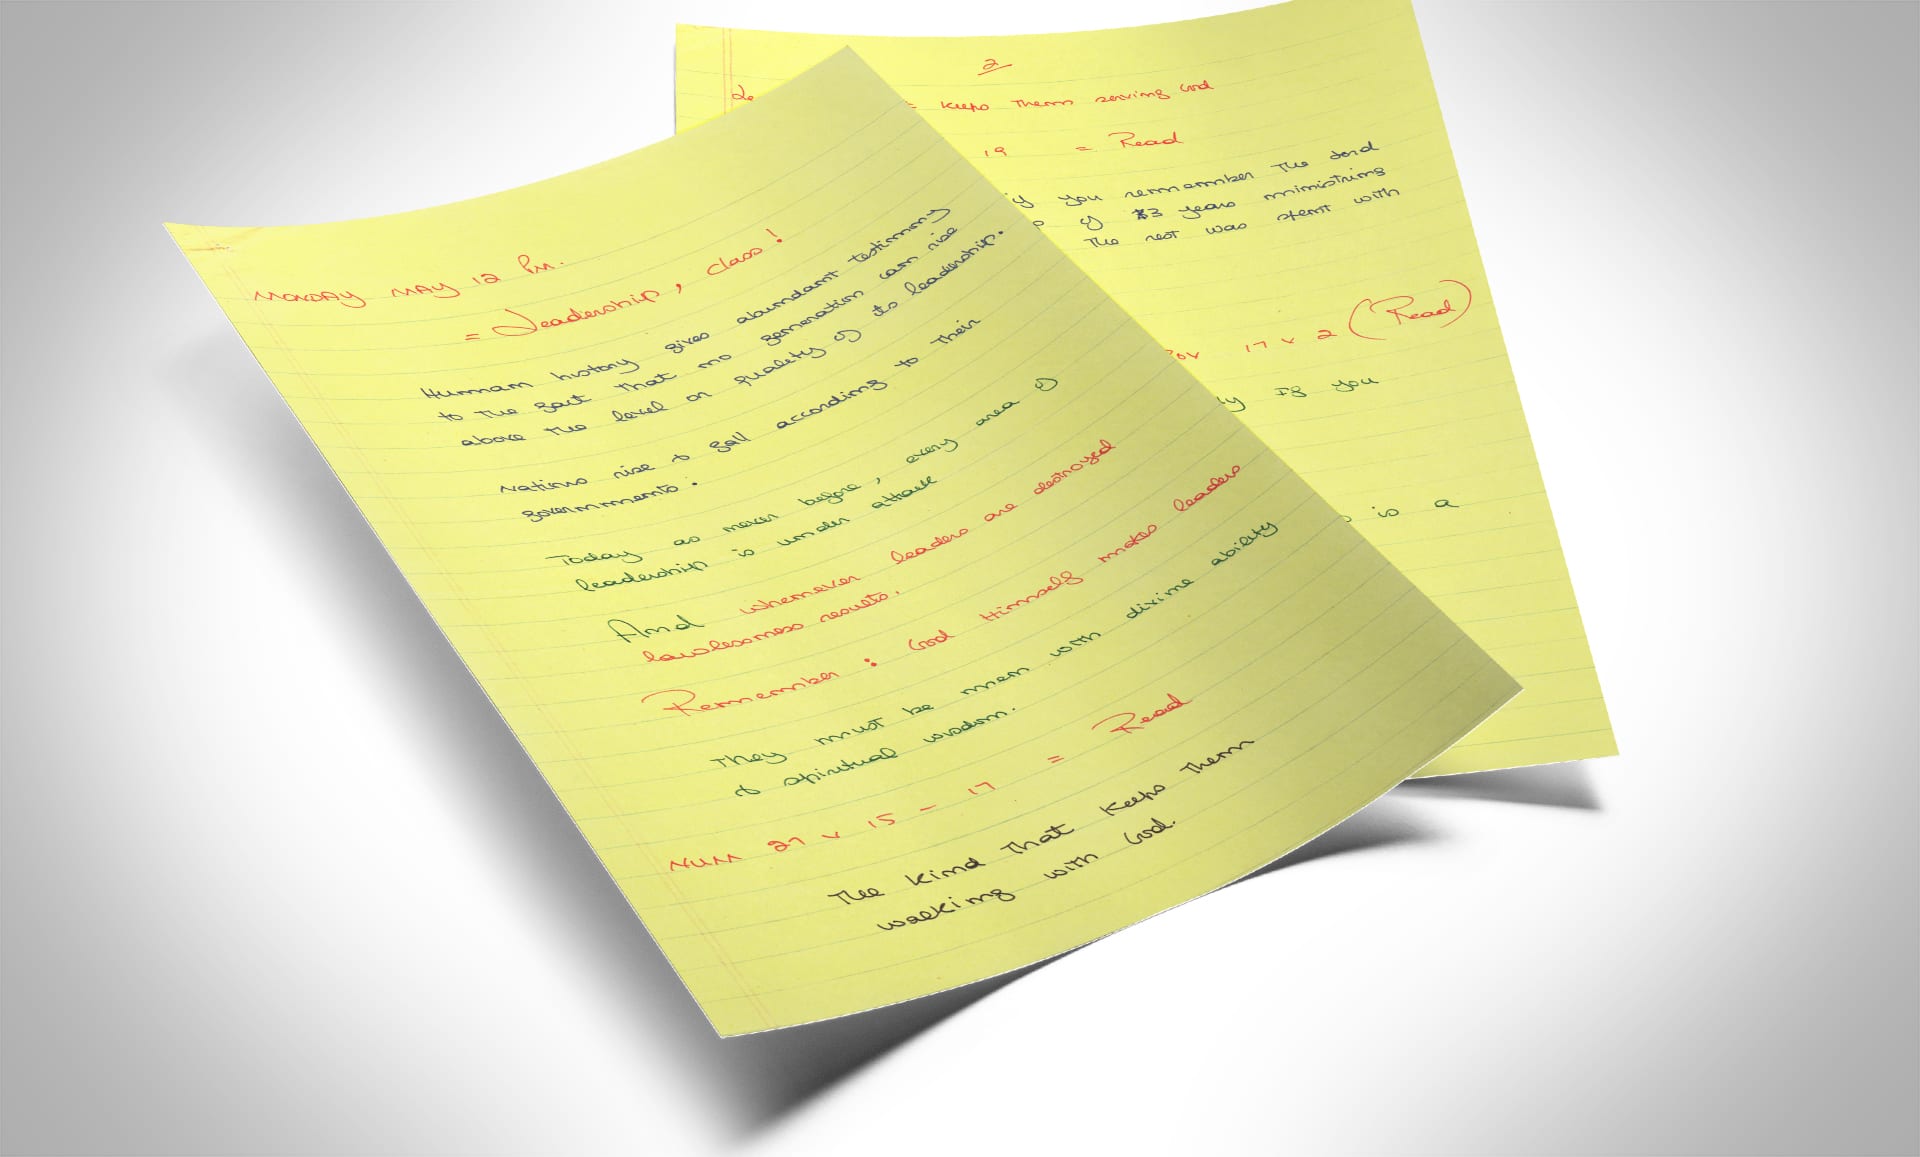 Monday May 12 Pm.
= Leadership, class!
Human history gives abundant testimony
to the fact that no generation can rise
above the level or quality of its leadership.
Nations rise & fall according to their
governments.
Today as never before, every area of
leadership is under attack
And whenever leaders are destroyed
lawlessness results.
Remember: God Himself makes leaders
They must be men with divine ability
& spiritual wisdom.
Num 27 v 15 - 17 = Read
The kind that keeps them
walking with God.
2
= keeps them serving God
19 = Read
if you remember the Lord
of 3 years ministring
The rest was spent with
17 v 2 (Read)
If you
is a